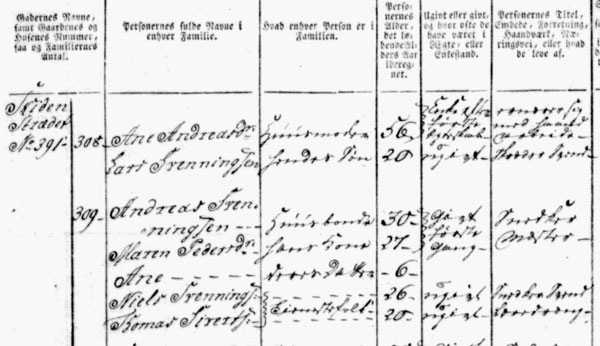 Gadernes Navne, samt Gaardenes og Husenes Nummer, saa og Familiernes Antal.
Personernes fulde Navne i enhver Familie.
Hvad enhver Person er i Familien.
Personernes Alder, det løbende Alders Aar iberegnet.
Ugivt eller givt, og hvor ofte de have været i Egte- eller Enkestand.
Personernes Titel, Embede, Forretning, Haandværk, Næringsvei, eller hvad de leve af.
Skiden Strædet No 391- 308- Ane Andreasdr. Huusmoder 56 Enke efter første Egteskab
Lars Frenningsen hendes Søn 20 ugivt
309- Andreas Frenningsen Huusbonde 30 Givt første Gang Snedker Mester
Maren Pedersdr. hans Kone 27
Ane deres Datter 6
Niels Frennings: 26 ugivt Snedker Svend
Thomas Tienestefolk 20 ugivt